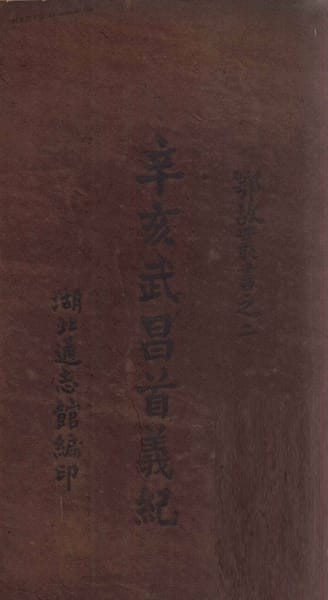 鄂故叢書之二
辛亥武昌首義紀
湖北通志館編印